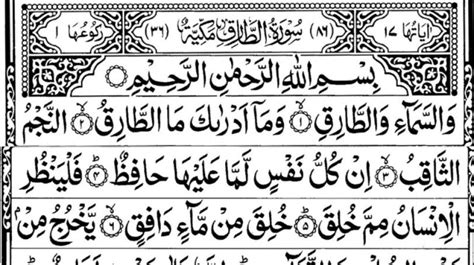 اٰیَاتُهَا ۱۷ (۸۶) سُوْرَةُ الطَّارِقِ مَكِّیَّةٌ (۳۶) رُكُوْعُهَا ۱
بِسْمِ اللّٰهِ الرَّحْمٰنِ الرَّحِیْمِ
وَالسَّمَآءِ وَالطَّارِقِ ۱ وَمَاۤ اَدْرٰىكَ مَا الطَّارِقُ ۲ النَّجْمُ
الثَّاقِبُ ۳ اِنْ كُلُّ نَفْسٍ لَّمَّا عَلَیْهَا حَافِظٌ ۴ فَلْیَنْظُرِ
الْاِنْسَانُ مِمَّ خُلِقَ ۵ خُلِقَ مِنْ مَّآءٍ دَافِقٍ ۶ یَّخْرُجُ مِنْۢ